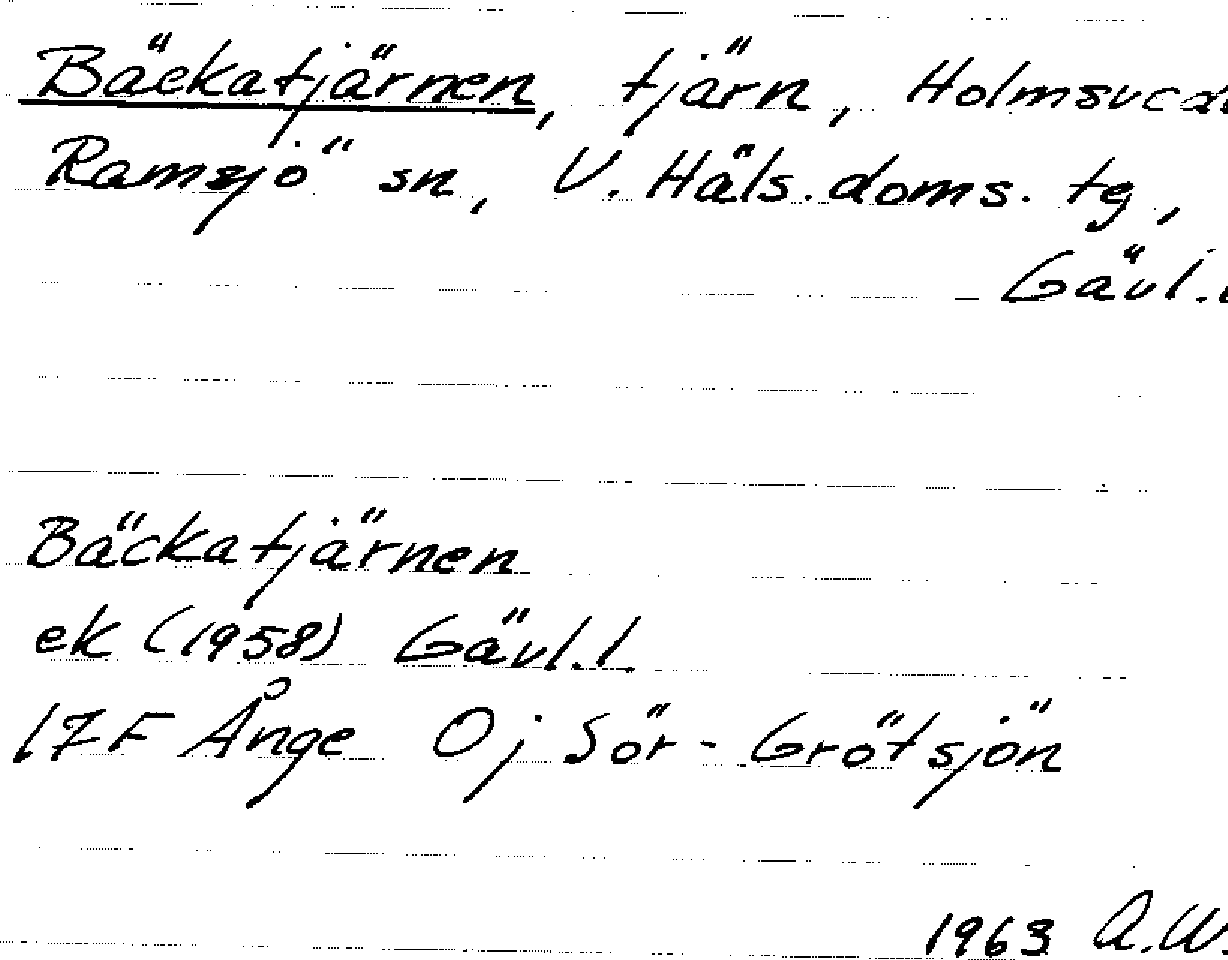 Bäckatjärnen, tjärn,
Ramsjö sn, V. Häls. doms. tg,
Gävl.l
Bäckatjärnen
ek (1958) Gävl.l.
17F Ånge 0j Sör-Grötsjön
1963 A.W.